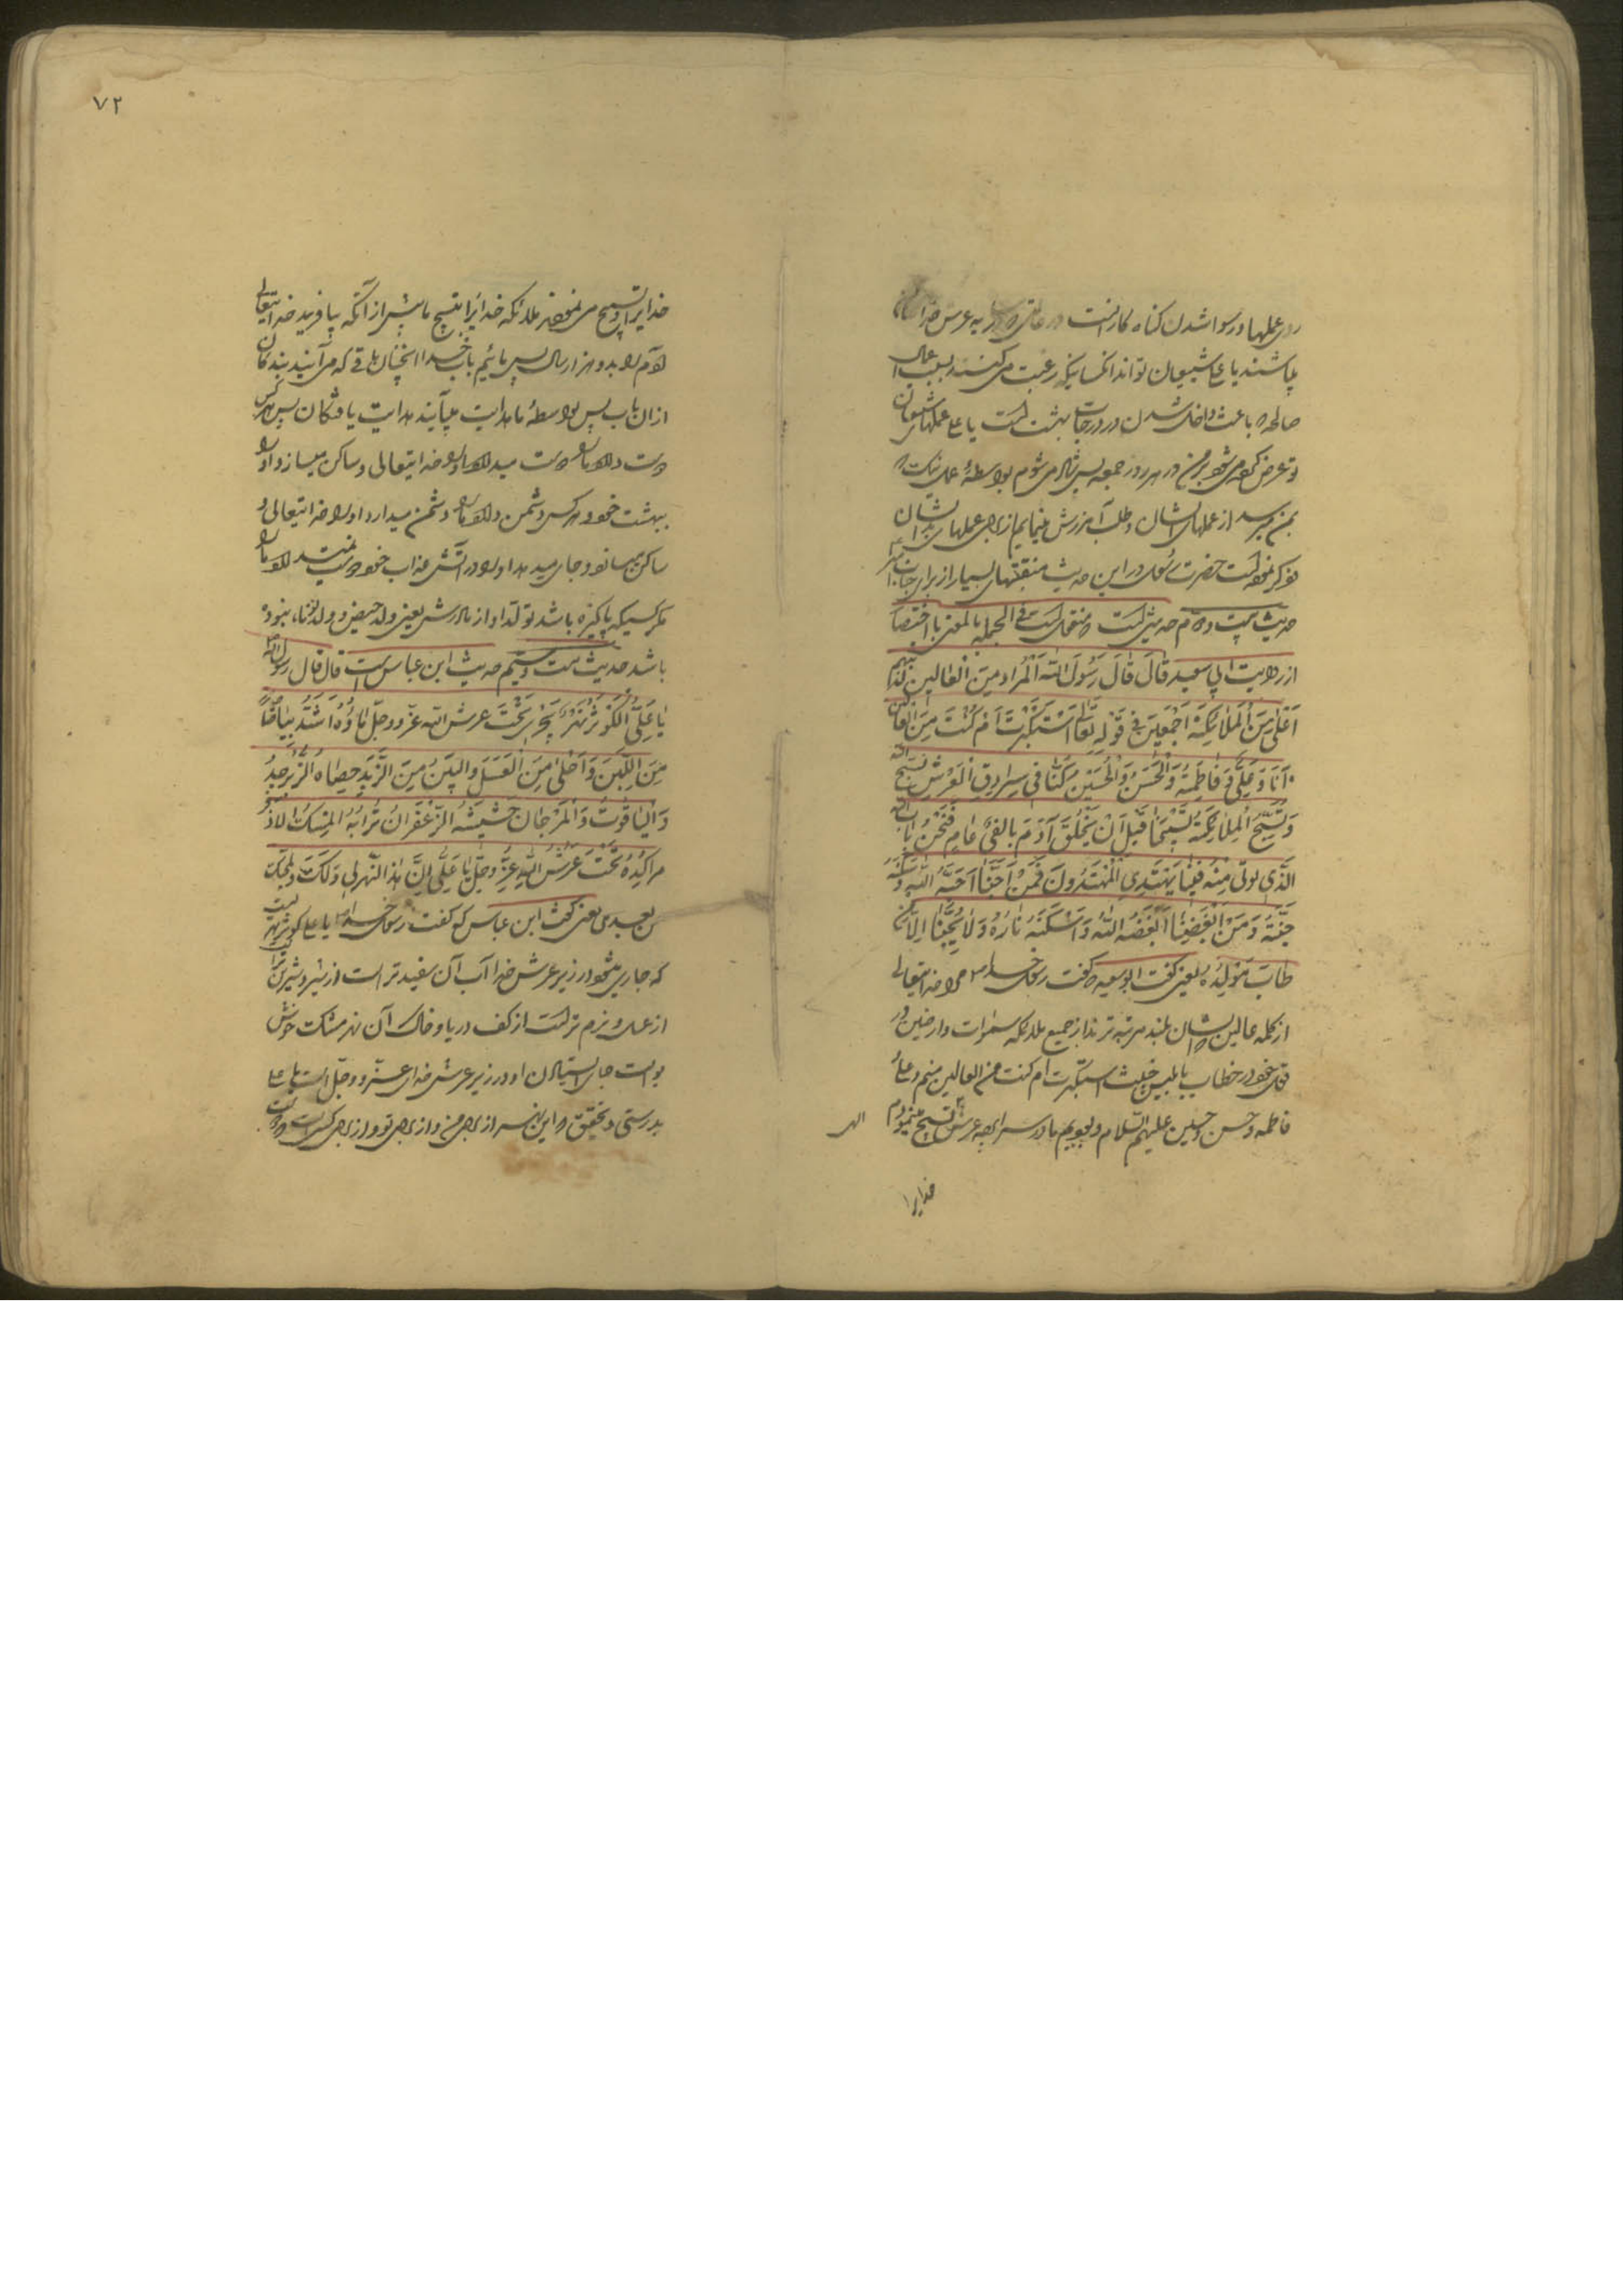 در عملها و رسوا شدن گناه کارانست در
باشند یا علی شیعیان تواند انکسانیکه رغبت می کنند بسبب اعمال
صالحه باعث داخل شدن در درجات بهشت است یا علی عملهای شیعیان
تو عرض کرده می شود بر من در هر روز جمعه پس شاد می شوم بواسطهٔ عمل نیک که
بمن میرسد از عملهای ایشان و طلب آمرزش مینمایم از برای عملهای بد ایشان
ذکر نموده است حضرت رسول در این حدیث منقبتهای بسیار از برای
حدیث بیست و دوم حدیثی است که منقول است فی الجمله بالمعنی با اختصار
از روایت ابی سعید قَالَ قَالَ رَسُولَ اللّه اَلْمُراد مِنَ الْعٰالین الَّذینَهُم
اَعْلٰی مِنَ الْمَلٰائِکَةِ اَجْمَعینَ فی قَوْلِهِ تَعٰالٰی اَسْتَکْبَرْتَ اَمْ کُنْتَ مِنَ الْعٰالینَ
اَنَا وَ عَلِیٌّ وَ فٰاطِمَةُ وَ الْحَسَنُ وَ الْحُسَیْن کُنّٰا فی سِرادِقِ الْعَرْشِ نُسَبِّحُ اللّه
وَ تُسَبِّحُ الْمَلٰائِکَةُ تَسْبیحَنٰا قَبْلَ اَنْ یَخْلُقَ آدَمَ بِاَلْفَیْ عٰامٍ فَنَحْنُ بٰابُ اللّه
الَّذی یُؤتٰی مِنْهُ فَبِنٰا یَهْتَدِی الْمُهْتَدُونَ فَمَنْ اَحَبَّنٰا اَحَبَّهُ اللّه وَ اَسْکَنَهُ
جَنَّتَهُ وَ مَنْ اَبْغَضَنٰا اَبْغَضَهُ اللّٰهُ وَ اَسْکَنَهُ نٰارَهُ وَ لٰا یُحِبُّنٰا اِلّٰا مَنْ
طٰابَ مَوْلِدُهُ یعنی گفت ابو سعید که گفت رسول خدا مراد خدایتعالی
از کلمه عالین که ایشان بلند مرتبه ترند از جمیع ملائکه سموات و ارضین در
قول خود در خطاب بابلیس خبیث استکبرت ام کنت من العالین منم و علی و
فاطمه و حسن و حسین علیهم السّلام و بودیم ما در سراپرده عرش تسبیح مینمودیم
خدایرا
۷۲
خدایرا و تسبیح می نمودند ملائکه خدایرا بتسبیح ما پیش از آنکه بیافریند خدایتعالی
آدم را بدو هزار سال پس مائیم باب خدا انچنان بابی که می آیند بندگان
از ان باب پس بواسطهٔ ما هدایت میآیند هدایت یافتگان پس هر کس
دوست دارد ما را دوست میدارد او را خدایتعالی و ساکن میسازد او را
ببهشت خود و هر کس دشمن دارد ما را دشمن میدارد او را خدایتعالی و
ساکن میسازد و جای میدهد او را در آتش عذاب خود و دوست نمیدارد ما را
مگر کسیکه پاکیزه باشد تولّد او از مادرش یعنی ولد حیض و ولد الزنا، نبوده
باشد حدیث بیست و سیم حدیث ابن عباس است قال قال رسول اللّه
یٰا عَلِیُّ اَلْکَوْثَرُ نَهْرٌ یَجْری تَحْتَ عرش اللّه عزّ و جلّ مٰاؤُهُ اَشَدُّ بَیٰاضًا
مِنَ اللَّبَنِ وَ اَحْلٰی مِنَ الْعَسَلِ وَ الْیَنُ مِنَ الزَّبَدِ حِصٰاهُ الزَّبَرْجَدُ
وَ الْیٰاقُوتُ وَ الْمَرْجٰان حَشیشُهُ الزَّعْفَرانُ تُرٰابُهُ الْمِسْکُ الْاَذْفَر
تَحْتَ عَرْشِ اللّٰهِ عَزَّ وَ جَلَّ یٰا عَلِیُّ اِنَّ هٰذَا النَّهْرَ لی وَ لَکَ وَ لِمُحِبّیکَ
من بعدی یعنی گفت ابن عباس که گفت رسول خدا یا علی کوثر نهریست
که جاری میشود در زیر عرش خدا آب آن سفید تر است از شیر و شیرین تر
از عسل و نرم تر است از کف دریا و خاک آن نهر مشک خوش
بو است جای استادن او در زیر عرش خدای عزّ و جلّ است یا علی
بدرستی و تحقیق که این نهر از برای من و از برای تو و از برای کسی است که دوست